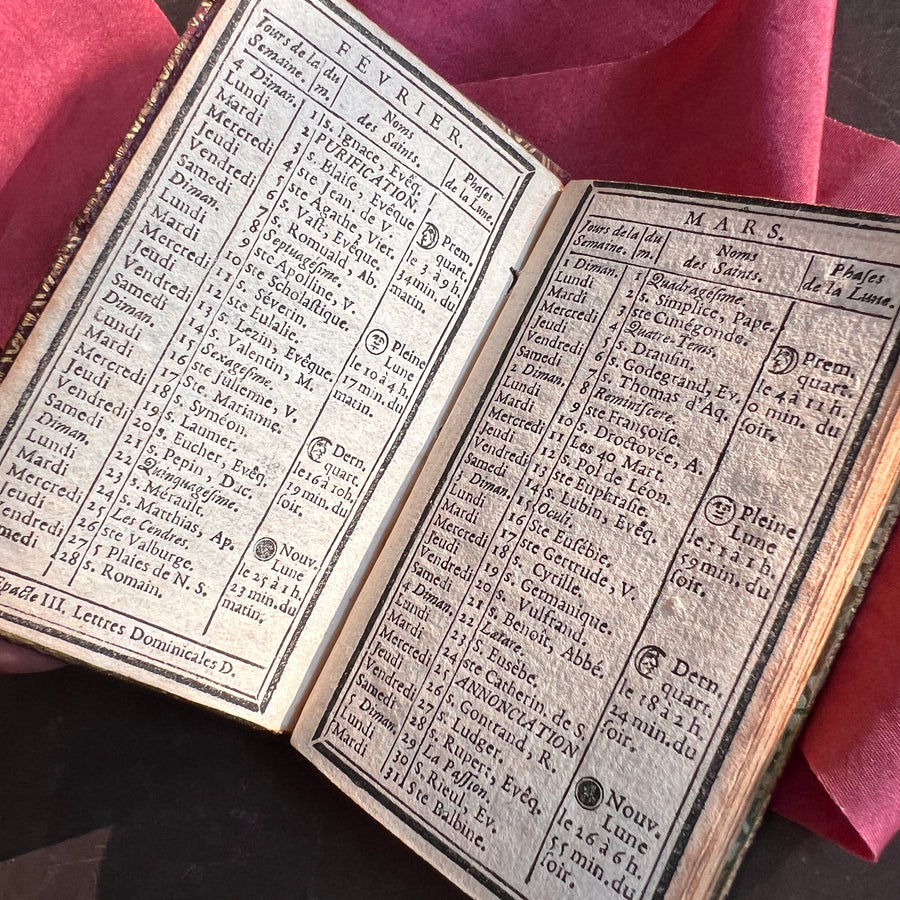 FEVRIER.
Jours de la Semaine. du m. Noms des Saints. Phaſes de la Lune.
4 Diman. 1 s. Ignace, Evêq.
Lundi 2 PURIFICATION.
Mardi 3 s. Blaiſe, Evêque
Mercredi 4 ste Jean. de V.
Jeudi 5 ste Agathe, Vier.
Vendredi 6 s. Vaſt, Evêque.
Samedi 7 s. Romuald, Ab.
Diman. 8 Septuageſime.
Lundi 9 ste Apolline, V.
Mardi 10 ste Scholaſtique.
Mercredi 11 s. Séverin.
Jeudi 12 ste Eulalie.
Vendredi 13 s. Lezin, Evêque.
Samedi 14 s. Valentin, M.
Diman. 15 Sexageſime.
Lundi 16 ste Julienne, V.
Mardi 17 ste Marianne.
Mercredi 18 s. Syméon.
Jeudi 19 s. Laumer.
Vendredi 20 s. Eucher, Evêq.
Samedi 21 s. Pepin, Duc.
Diman. 22 Quinquageſime.
Lundi 23 s. Mérault.
Mardi 24 s. Matthias, Ap.
Mercredi 25 Les Cendres.
Jeudi 26 ste Valburge.
Vendredi 27 5 Plaies de N. S.
medi 28 s. Romain.
Prem.
quart.
le 3 à 9 h.
34 min. du
matin.
Pleine
Lune
le 10 à 4 h.
17 min. du
matin.
Dern.
quart.
le 16 à 10h.
19 min. du
ſoir.
Nouv.
Lune
le 25 à 1 h.
23 min. du
matin.
Epacte III. Lettres Dominicales D.
MARS.
Jours de la Semaine. du m. Noms des Saints. Phaſes de la Lune.
1 Diman. 1 Quadrageſime.
Lundi 2 s. Simplice, Pape.
Mardi 3 ste Cunégonde.
Mercredi 4 Quatre-Tems.
Jeudi 5 s. Drauſin.
Vendredi 6 s. Godegrand, Ev.
Samedi 7 s. Thomas d'Aq.
2 Diman. 8 Reminiſcere.
Lundi 9 ste Françoiſe.
Mardi 10 s. Droctovée, A.
Mercredi 11 Les 40 Mart.
Jeudi 12 s. Pol de Léon.
Vendredi 13 ste
Samedi 14 s. Lubin, Evêq.
3 Diman. 15 Oculi.
Lundi 16 ste Euſébie.
Mardi 17 ste Gertrude, V.
Mercredi 18 s. Cyrille.
Jeudi 19 s. Germanique.
Vendredi 20 s. Vulfrand.
Samedi 21 s. Benoît, Abbé.
4 Diman. 22 Lætare.
Lundi 23 s. Euſèbe.
Mardi 24 ste Catherin. de S.
Mercredi 25 ANNONCIATION
Jeudi 26 s. Gontrand, R.
Vendredi 27 s. Ludger.
Samedi 28 s. Rupert, Evêq.
5 Diman. 29 La Paſſion.
Lundi 30 s. Rieul, Ev.
Mardi 31 Ste Balbine.
Prem.
quart.
le 4 à 11 h.
0 min. du
ſoir.
Pleine
Lune
le 11 à 1 h.
59 min. du
ſoir.
Dern.
quart.
le 18 à 2 h.
24 min. du
ſoir.
Nouv.
Lune
le 26 à 6 h.
55 min. du
ſoir.